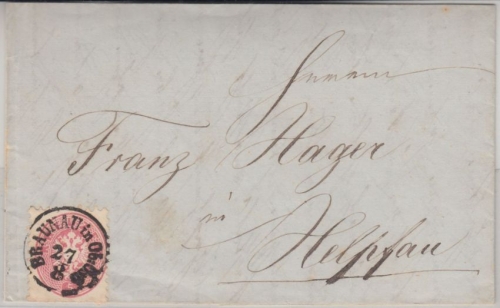 Herrn
Franz Hager
in
Helpfau
BRAUNAU in Ob.
27
8